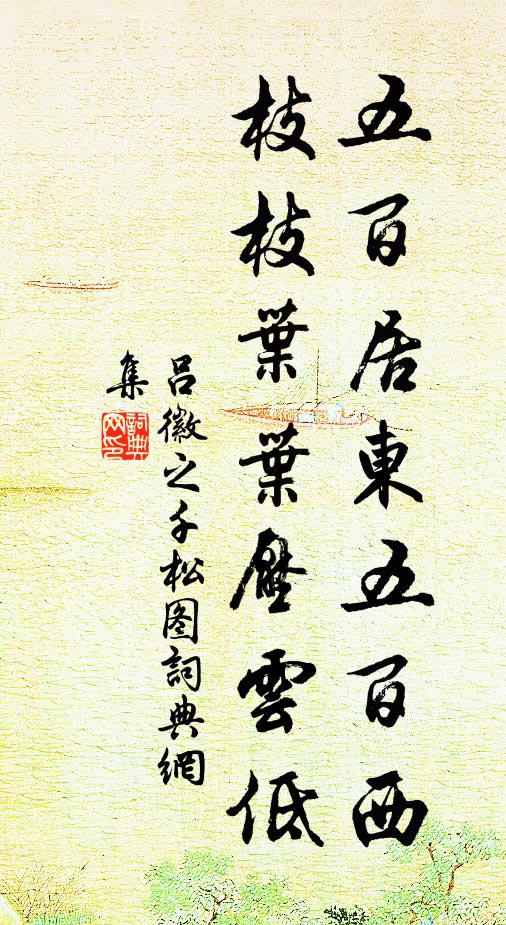 五百居東五百西
枝枝葉葉壓雲低
呂徽之千松图詞典網
集
詞典网印